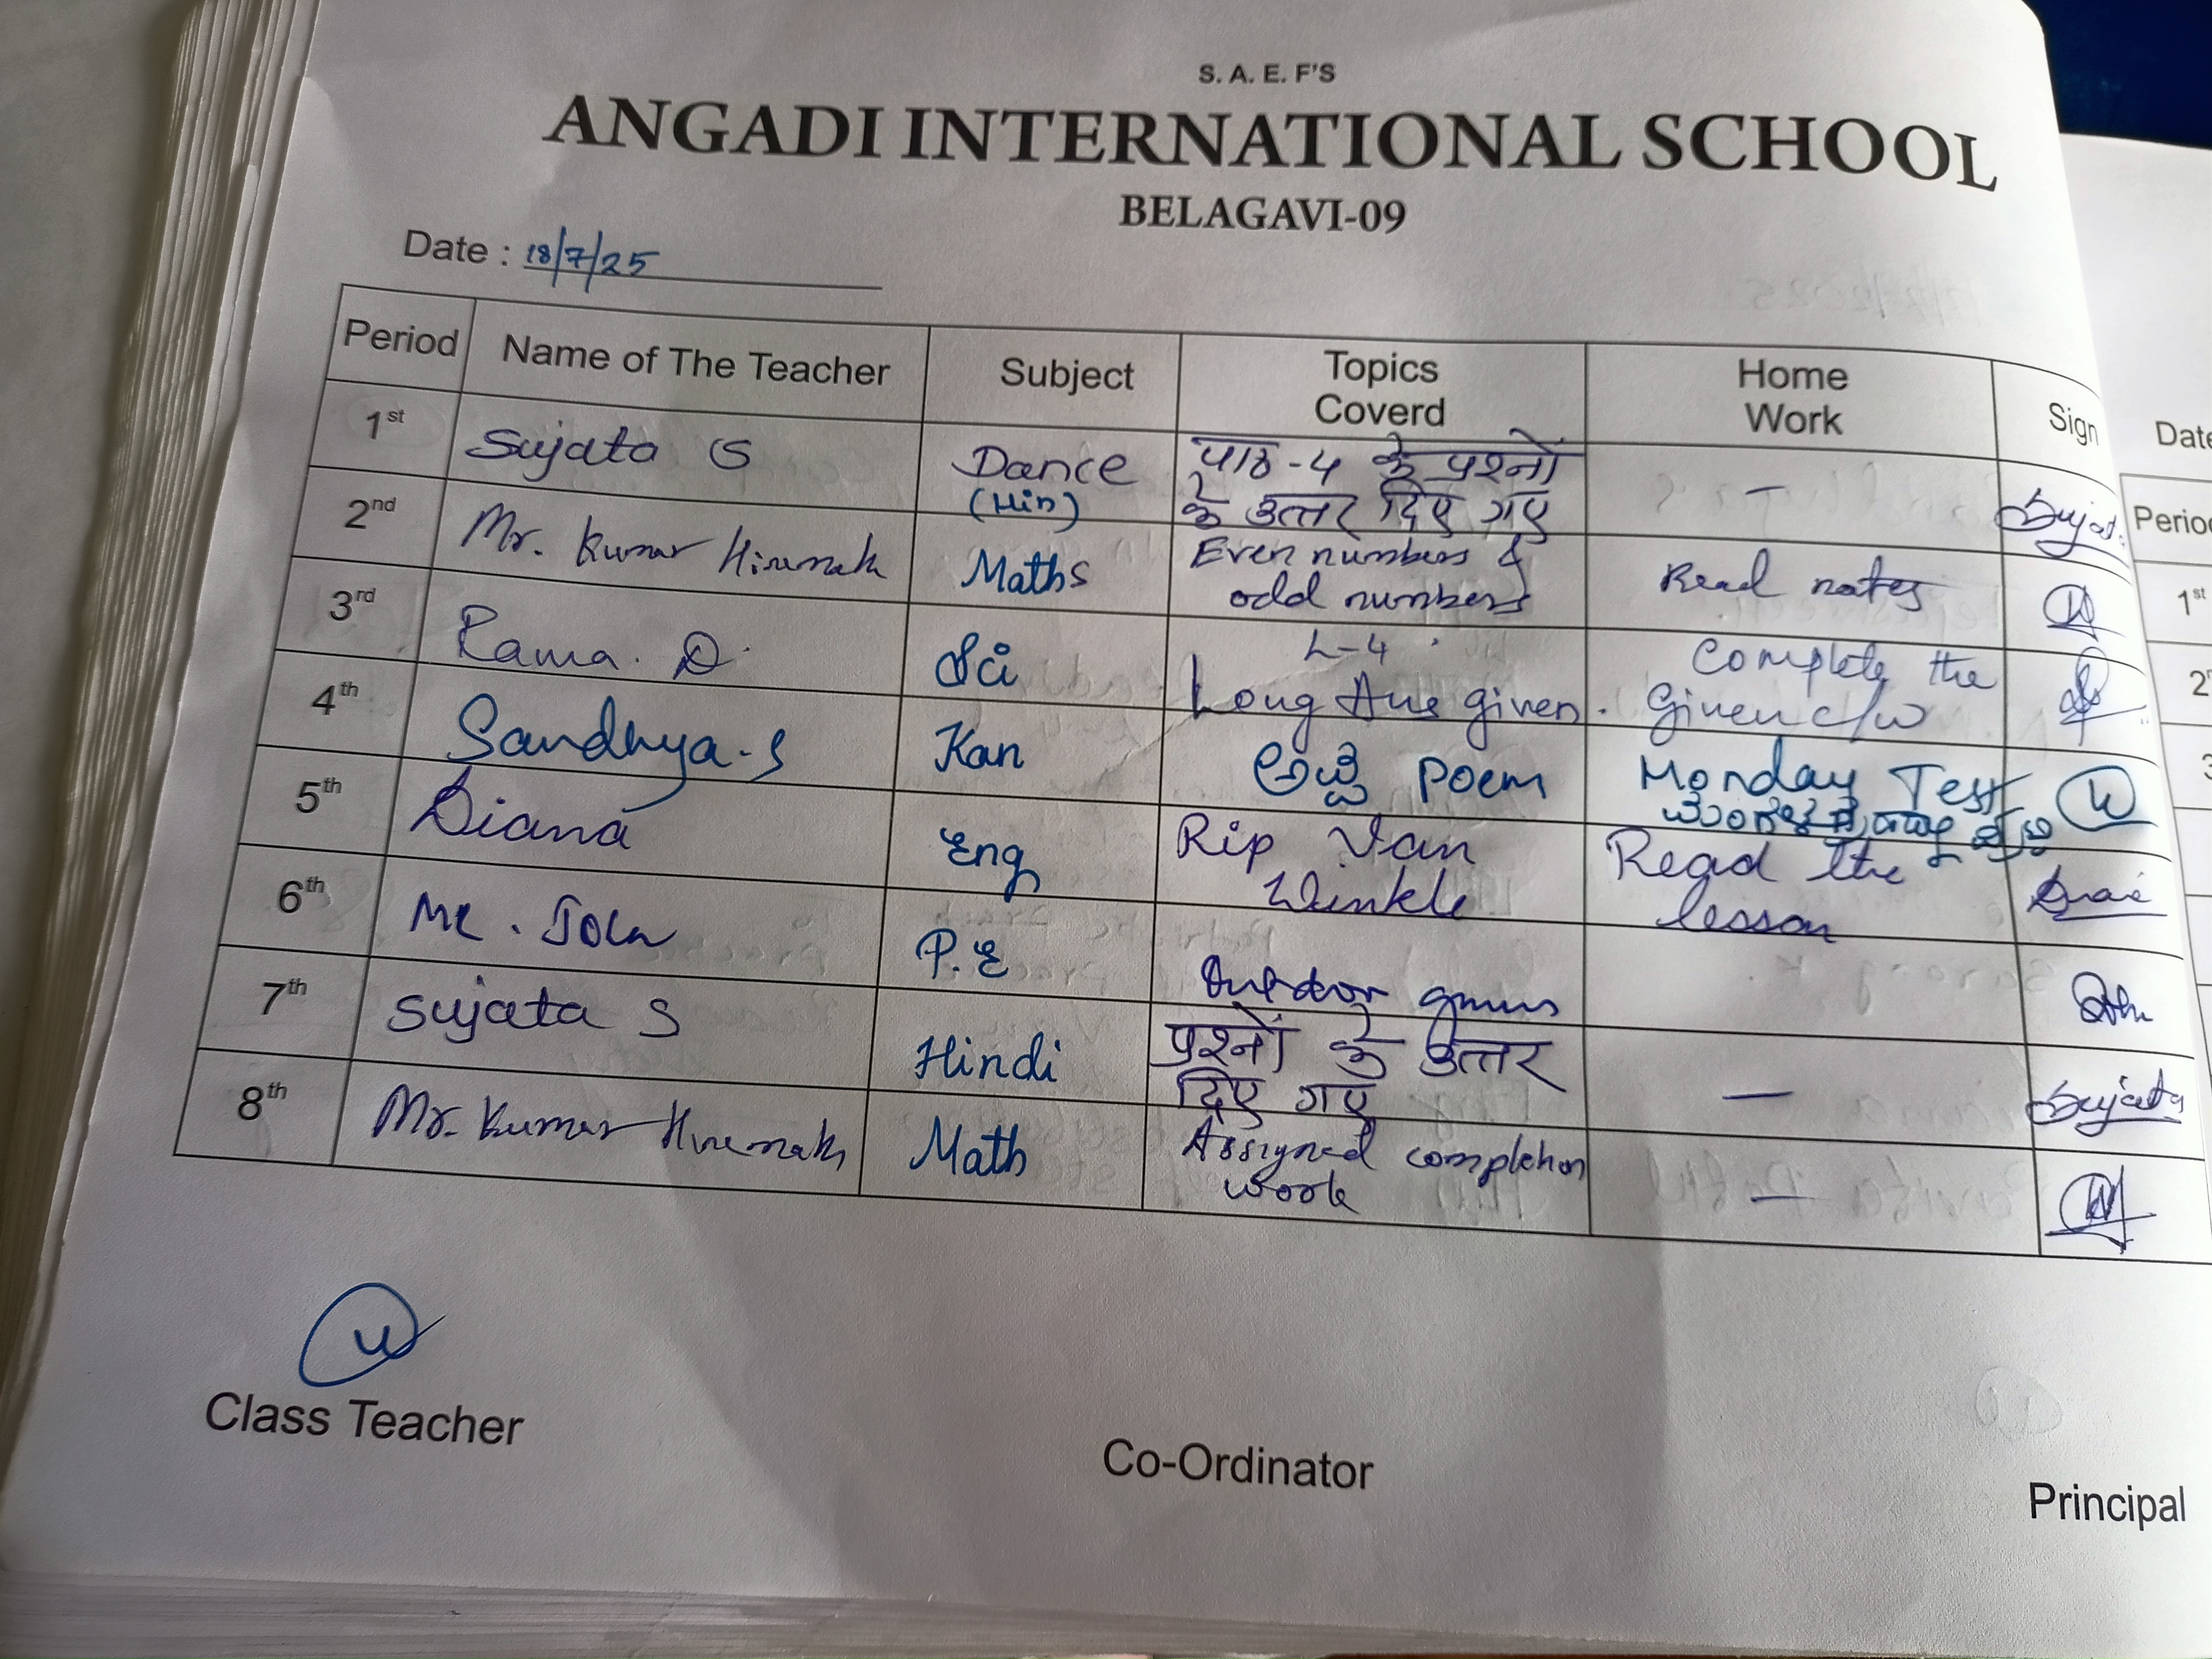 S. A. E. F'S
ANGADI INTERNATIONAL SCHOOL
BELAGAVI-09
Date : 18/7/25
Period Name of The Teacher Subject Topics Coverd Home Work Sign
1st Sujata S Dance (Hin) पाठ-4 के प्रश्नों के उत्तर दिए गए - Sujata
2nd Mr. Kumar Hiremath Maths Even numbers & odd numbers Read notes
3rd Rama. D. Sci L-4 Long Ans given. Complete the Given c/w
4th Sandhya.S Kan ಅಜ್ಜಿ Poem Monday Test
5th Diana Eng Rip Van Winkle Read the lesson
6th Mr. John P.E Outdoor games John
7th Sujata S Hindi प्रश्नों के उत्तर दिए गए - Sujata
8th Mr. Kumar Hiremath Math Assigned completion work -
Class Teacher
Co-Ordinator
Principal
Date
Period
1st